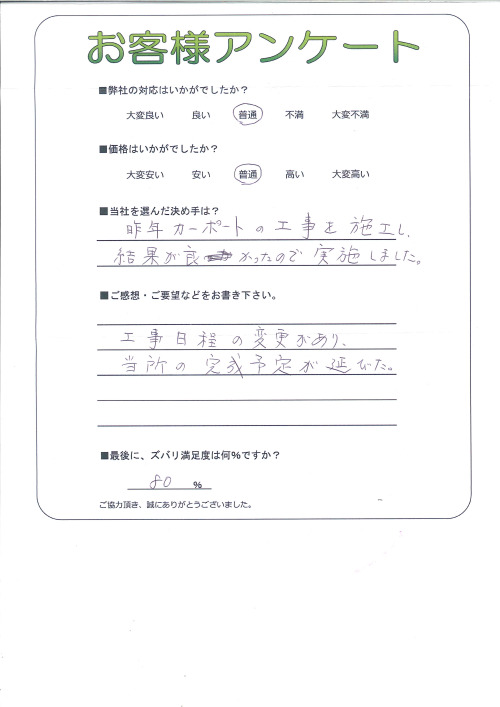 お客様アンケート
■弊社の対応はいかがでしたか？
大変良い 良い 普通 不満 大変不満
■価格はいかがでしたか？
大変安い 安い 普通 高い 大変高い
■当社を選んだ決め手は？
昨年カーポートの工事を施工し、
結果が良かったので実施しました。
■ご感想・ご要望などをお書き下さい。
工事日程の変更があり、
当所の完成予定が延びた。
■最後に、ズバリ満足度は何%ですか？
80 %
ご協力頂き、誠にありがとうございました。